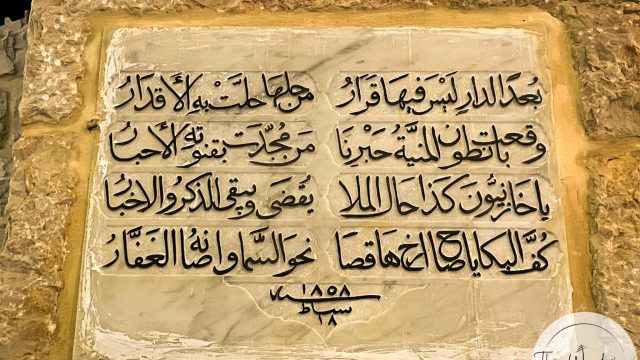 بعدًا لدار ليس فيها قرار من حلها حلت به الاقدار
وقعت بانطون المنية حبرنا من مجدت بقنوته الأحبار
يا خازنيون كذا حال الملا يقضى ويبقى الذكر والاخبار
كف البكا يا صاح ارخ ها قضا نحو السما واضانه الغفار
سنة ١٨٥٨
١٨ سباط